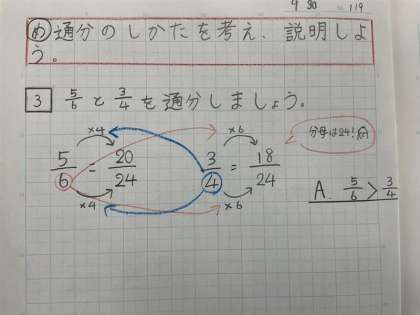 9 30 119
め 通分のしかたを考え、説明しよ
う。
3 5/6 と 3/4 を通分しましょう。
×4 ×6
5/6 = 20/24 3/4 = 18/24 分母は24!
×4 ×6
A. 5/6 > 3/4